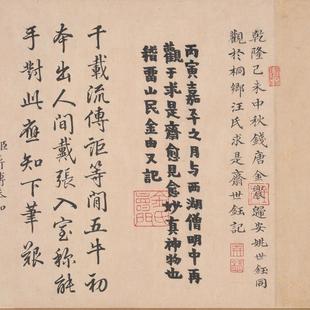 乾隆己未中秋錢唐金農歸安姚世鈺同
觀於桐鄉汪氏求是齋世鈺記
丙寅嘉平之月与西湖僧明中再
觀于求是齋愈見愈妙真神物也
稽畱山民金由又記
千載流傳詎等閒五牛初
本出人間戴張入室稱能
手對此應知下筆艱
臣蔣溥恭和